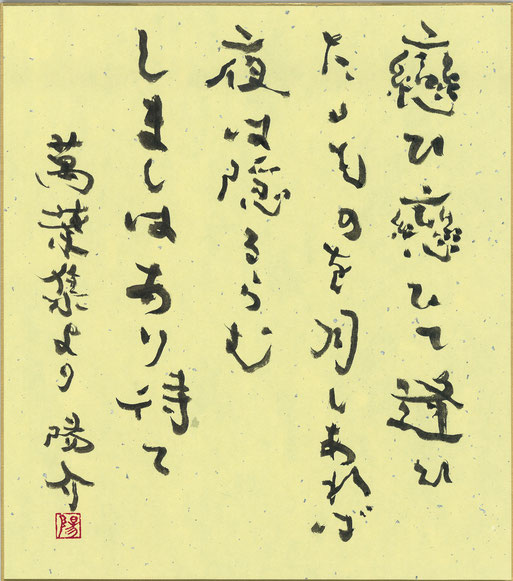 戀ひ戀ひて逢ひ
たるものを月しあれば
夜は隠るらむ
しましはあり待て
萬葉集より 陽介
陽